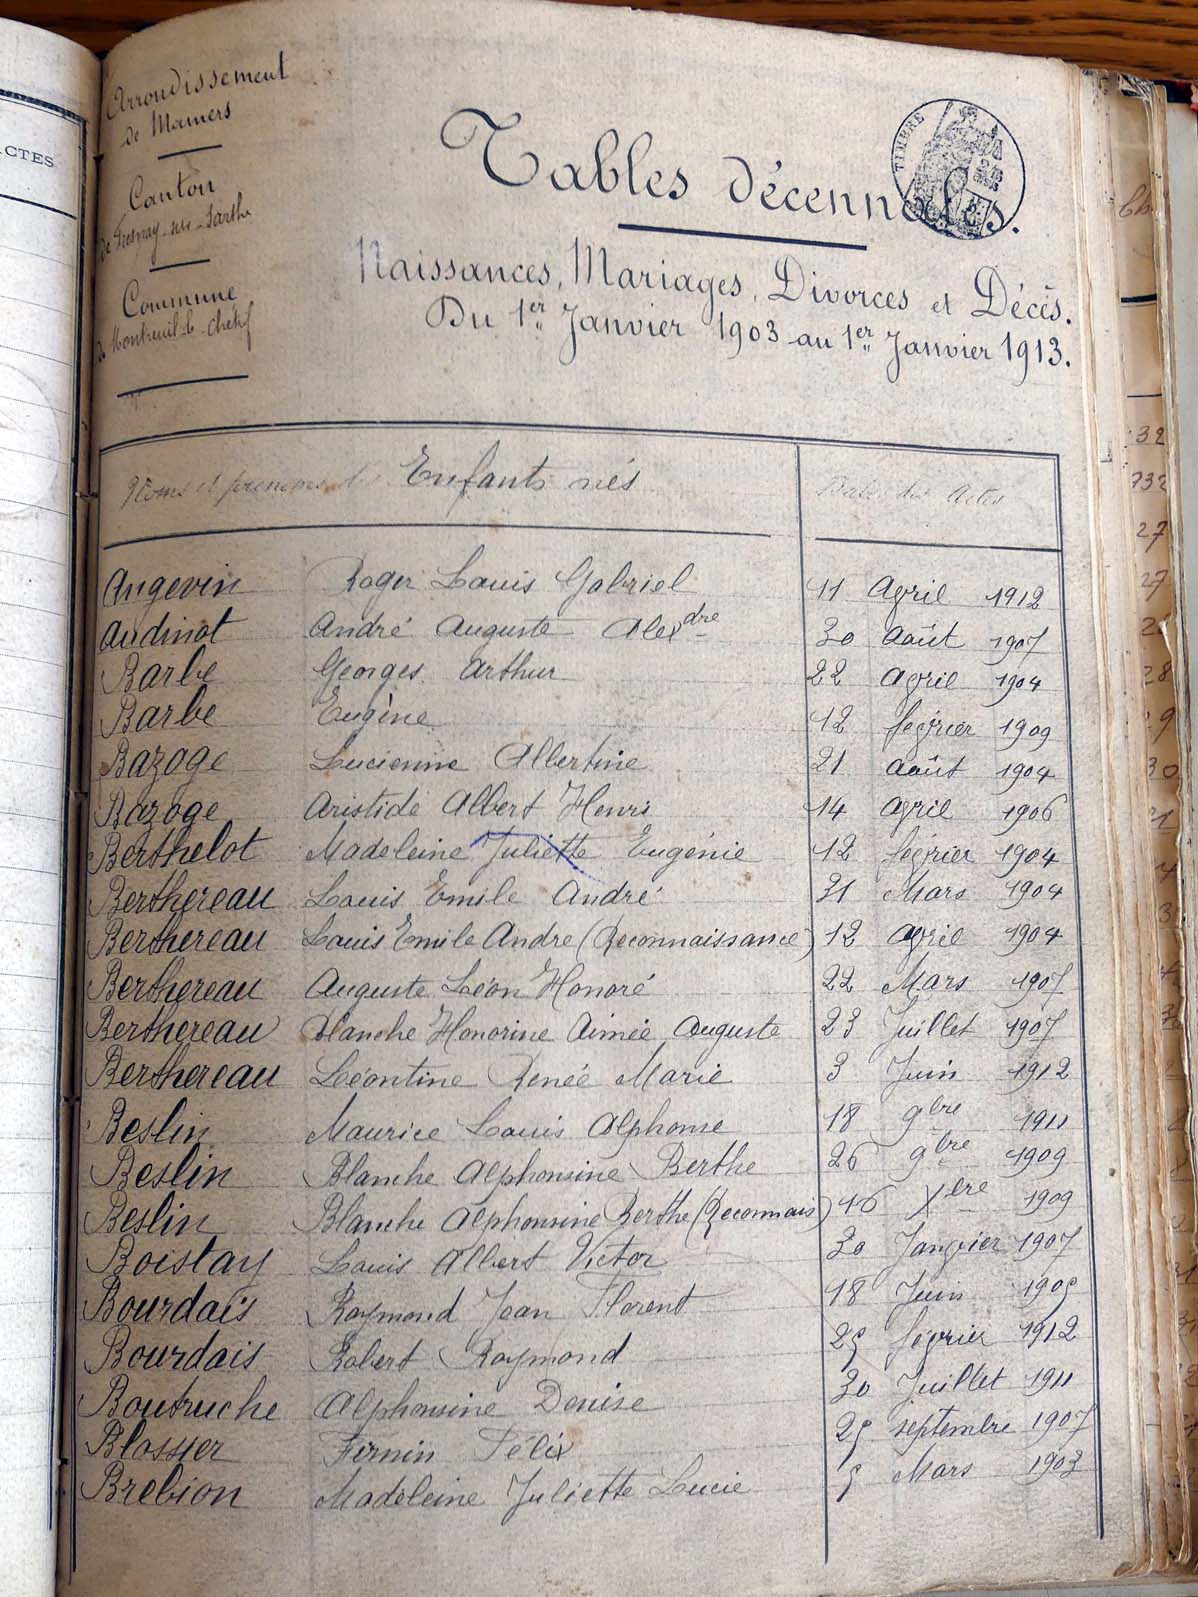 ACTES
Arrondissement
de Mamers
Canton
de Fresnay-sur-Sarthe
Commune
de Montreuil-le-Chétif
TIMBRE
Tables décennales.
Naissances, Mariages, Divorces et Décès.
Du 1er Janvier 1903 au 1er Janvier 1913.
Noms et prénoms des Enfants nés Dates des Actes
Angevin Roger Louis Gabriel 11 Avril 1912
Audinot André Auguste Alexdre 30 Août 1907
Barbe Georges Arthur 22 Avril 1904
Barbé Eugène 12 février 1909
Bazoge Lucienne Albertine 21 Août 1904
Bazoge Aristide Albert Henri 14 Avril 1906
Berthelot Madeleine Juliette Eugénie 12 février 1904
Berthereau Louis Emile André 31 Mars 1904
Berthereau Louis Emile André (Reconnaissance) 12 Avril 1904
Berthereau Auguste Léon Honoré 22 Mars 1907
Berthereau Blanche Honorine Aimée Auguste 23 Juillet 1907
Berthereau Léontine Renée Marie 3 Juin 1912
Beslin Maurice Louis Alphonse 18 9bre 1911
Beslin Blanche Alphonsine Berthe 26 9bre 1909
Beslin Blanche Alphonsine Berthe (Reconnais) 16 Xbre 1909
Boistay Louis Albert Victor 30 Janvier 1907
Bourdais Raymond Jean Florent 18 Juin 1905
Bourdais Robert Raymond 25 février 1912
Boutruche Alphonsine Denise 30 Juillet 1911
Blossier Firmin Félix 25 septembre 1907
Brebion Madeleine Juliette Lucie 5 Mars 1903